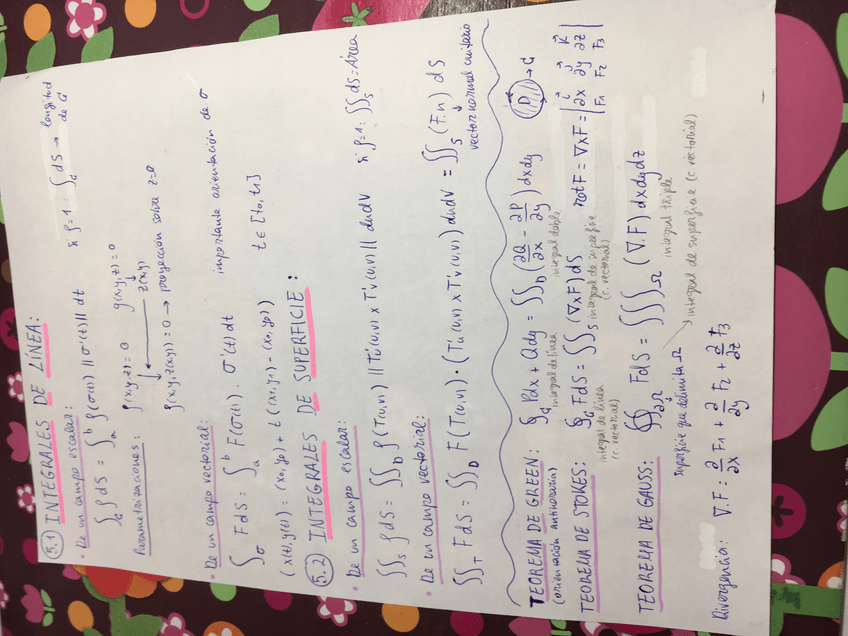 5.1 INTEGRALES DE LÍNEA:
• De un campo escalar:
∫_C ρ dS = ∫_a^b ρ(σ(t)) ||σ'(t)|| dt     si ρ=1 : ∫_C dS → longitud de C
Parametrizaciones: f(x,y,z) = 0   g(x,y,z) = 0
z(x,y)
f(x,y,z(x,y)) = 0 → proyección sobre z=0
• De un campo vectorial:
∫_σ F dS = ∫_a^b F(σ(t)) · σ'(t) dt     importante orientación de σ
(x(t), y(t)) = (x0, y0) + t ((x1, y1) - (x0, y0))     t ∈ [t0, t1]
5.2 INTEGRALES DE SUPERFICIE:
• De un campo escalar:
∬_S ρ dS = ∬_D ρ(T(u,v)) || T'u(u,v) x T'v(u,v) || dudv     si ρ=1 : ∬_S dS = Área
• De un campo vectorial:
∬_T F dS = ∬_D F(T(u,v)) · (T'u(u,v) x T'v(u,v)) dudv = ∬_S (F.n) dS
vector normal unitario
TEOREMA DE GREEN: ∮_C Pdx + Qdy = ∬_D (∂Q/∂x - ∂P/∂y) dxdy     D → C
(orientación antihoraria)     integral de línea     integral doble
TEOREMA DE STOKES: ∮_C F dS = ∬_S (∇xF) dS     rot F = ∇xF = | i j k ; ∂x ∂y ∂z ; F1 F2 F3 |
integral de línea (c. vectorial)     integral de superficie (c. vectorial)
TEOREMA DE GAUSS: ∯_∂Ω F dS = ∭_Ω (∇.F) dxdydz
superficie que delimita Ω     integral triple
integral de superficie (c. vectorial)
Divergencia: ∇.F = ∂/∂x F1 + ∂/∂y F2 + ∂/∂z F3